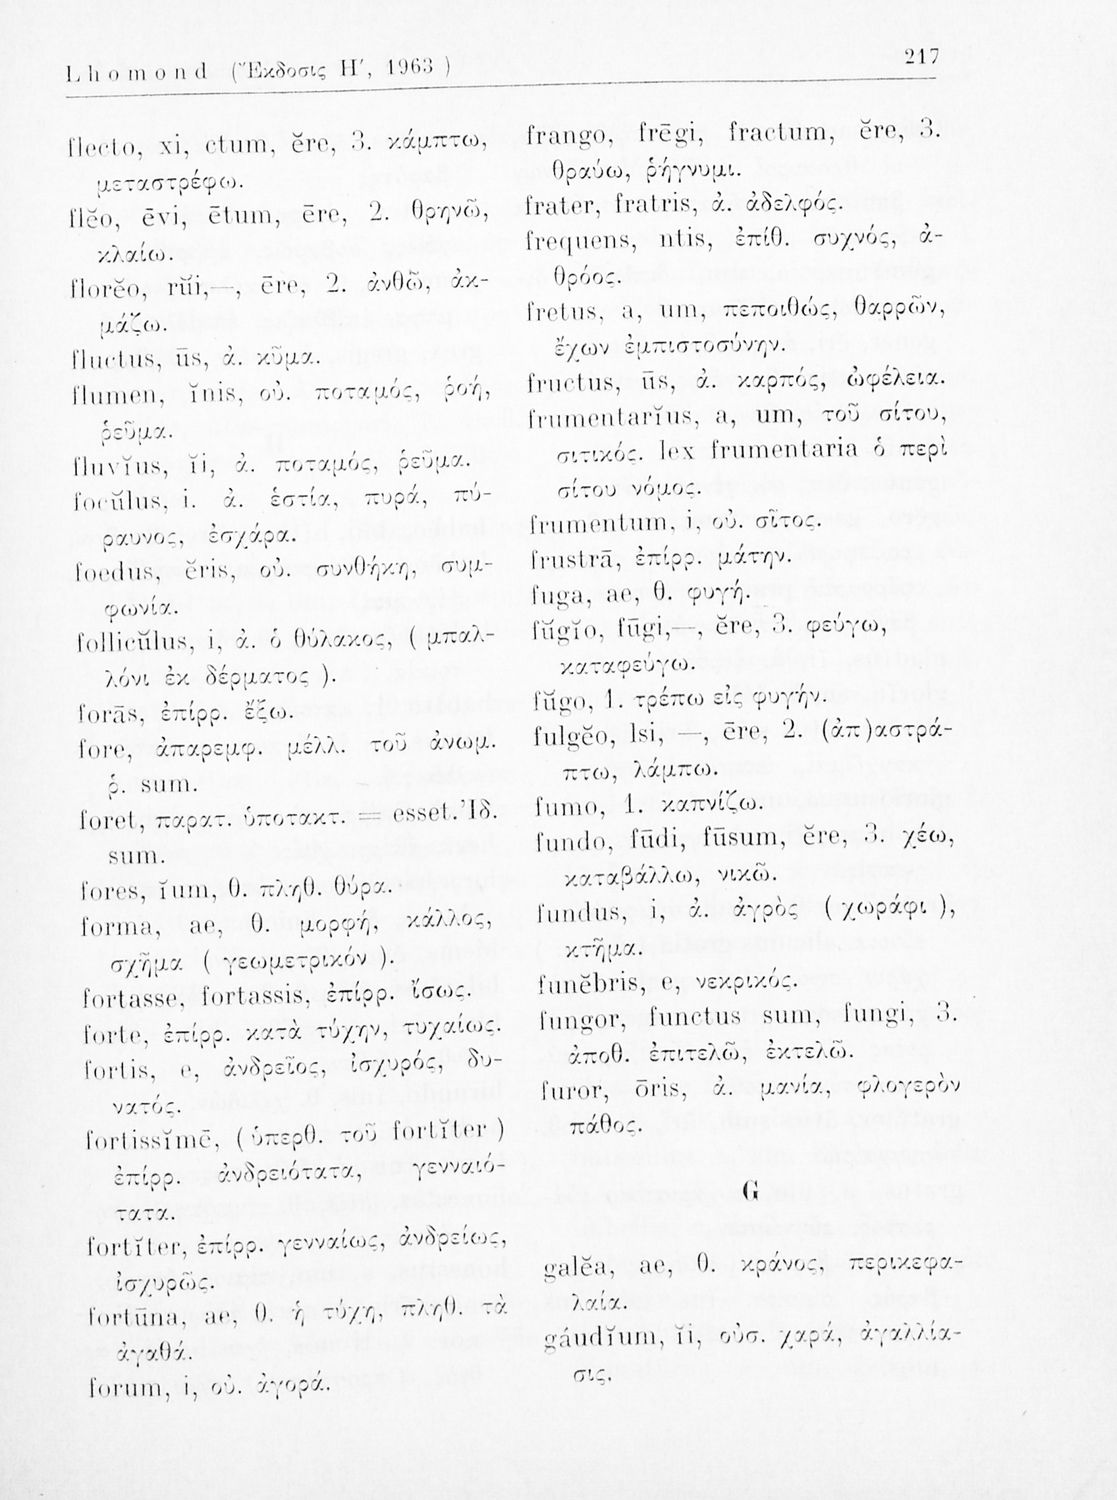 Lhomond (Ἔκδοσις Η′, 1963 )
217
flecto, xi, ctum, ĕre, 3. κάμπτω,
μεταστρέφω.
flĕo, ēvi, ētum, ēre, 2. θρηνῶ,
κλαίω.
florĕo, rŭi,—, ēre, 2. ἀνθῶ, ἀκ-
μάζω.
fluctus, ūs, ἀ. κῦμα.
flumen, ĭnis, οὐ. ποταμός, ῥοή,
ῥεῦμα.
fluvĭus, ĭi, ἀ. ποταμός, ῥεῦμα.
focŭlus, i. ἀ. ἑστία, πυρά, πύ-
ραυνος, ἐσχάρα.
foedus, ĕris, οὐ. συνθήκη, συμ-
φωνία.
follicŭlus, i, ἀ. ὁ θύλακος, ( μπαλ-
λόνι ἐκ δέρματος ).
forās, ἐπίρρ. ἔξω.
fore, ἀπαρεμφ. μέλλ. τοῦ ἀνωμ.
ῥ. sum.
foret, παρατ. ὑποτακτ. = esset. Ἰδ.
sum.
fores, ĭum, θ. πληθ. θύρα.
forma, ae, θ. μορφή, κάλλος,
σχῆμα ( γεωμετρικόν ).
fortasse, fortassis, ἐπίρρ. ἴσως.
forte, ἐπίρρ. κατὰ τύχην, τυχαίως.
fortis, e, ἀνδρεῖος, ἰσχυρός, δυ-
νατός.
fortissĭmē, ( ὑπερθ. τοῦ fortĭter )
ἐπίρρ. ἀνδρειότατα, γενναιό-
τατα.
fortĭter, ἐπίρρ. γενναίως, ἀνδρείως,
ἰσχυρῶς.
fortūna, ae, θ. ἡ τύχη, πληθ. τὰ
ἀγαθά.
forum, i, οὐ. ἀγορά.
frango, frēgi, fractum, ĕre, 3.
θραύω, ῥήγνυμι.
frater, fratris, ἀ. ἀδελφός.
frequens, ntis, ἐπίθ. συχνός, ἀ-
θρόος.
fretus, a, um, πεποιθώς, θαρρῶν,
ἔχων ἐμπιστοσύνην.
fructus, ūs, ἀ. καρπός, ὠφέλεια.
frumentarĭus, a, um, τοῦ σίτου,
σιτικός. lex frumentaria ὁ περὶ
σίτου νόμος.
frumentum, i, οὐ. σῖτος.
frustrā, ἐπίρρ. μάτην.
fuga, ae, θ. φυγή.
fŭgĭo, fūgi,—, ĕre, 3. φεύγω,
καταφεύγω.
fŭgo, 1. τρέπω εἰς φυγήν.
fulgĕo, lsi, —, ēre, 2. (ἀπ)αστρά-
πτω, λάμπω.
fumo, 1. καπνίζω.
fundo, fūdi, fūsum, ĕre, 3. χέω,
καταβάλλω, νικῶ.
fundus, i, ἀ. ἀγρὸς ( χωράφι ),
κτῆμα.
funĕbris, e, νεκρικός.
fungor, functus sum, fungi, 3.
ἀποθ. ἐπιτελῶ, ἐκτελῶ.
furor, ōris, ἀ. μανία, φλογερὸν
πάθος.
G
galĕa, ae, θ. κράνος, περικεφα-
λαία.
gáudĭum, ĭi, οὐσ. χαρά, ἀγαλλία-
σις.